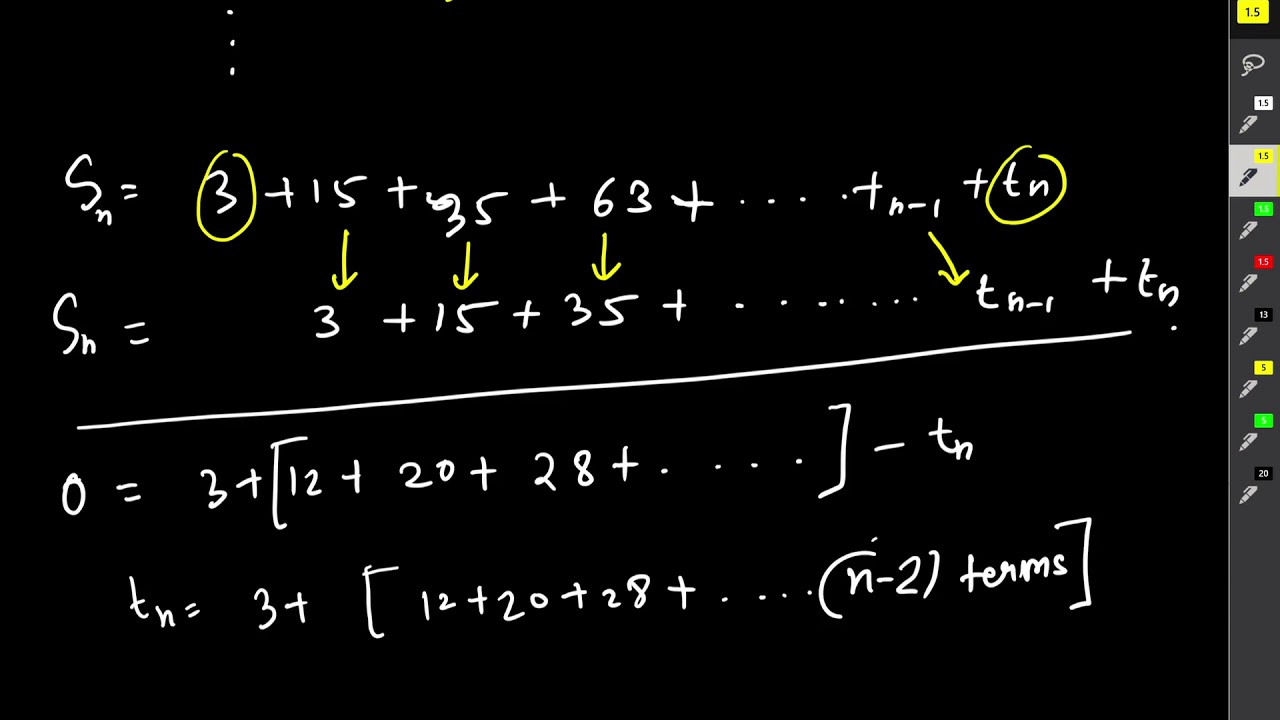 1.5
Sₙ = 3 + 15 + 35 + 63 + . . . . tₙ₋₁ + tₙ
Sₙ = 3 + 15 + 35 + . . . . . . . tₙ₋₁ + tₙ
0 = 3 + [12 + 20 + 28 + . . . . ] − tₙ
tₙ = 3 + [12 + 20 + 28 + . . . . (n-2) terms]
1.5
1.5
1.5
1.5
13
5
5
20